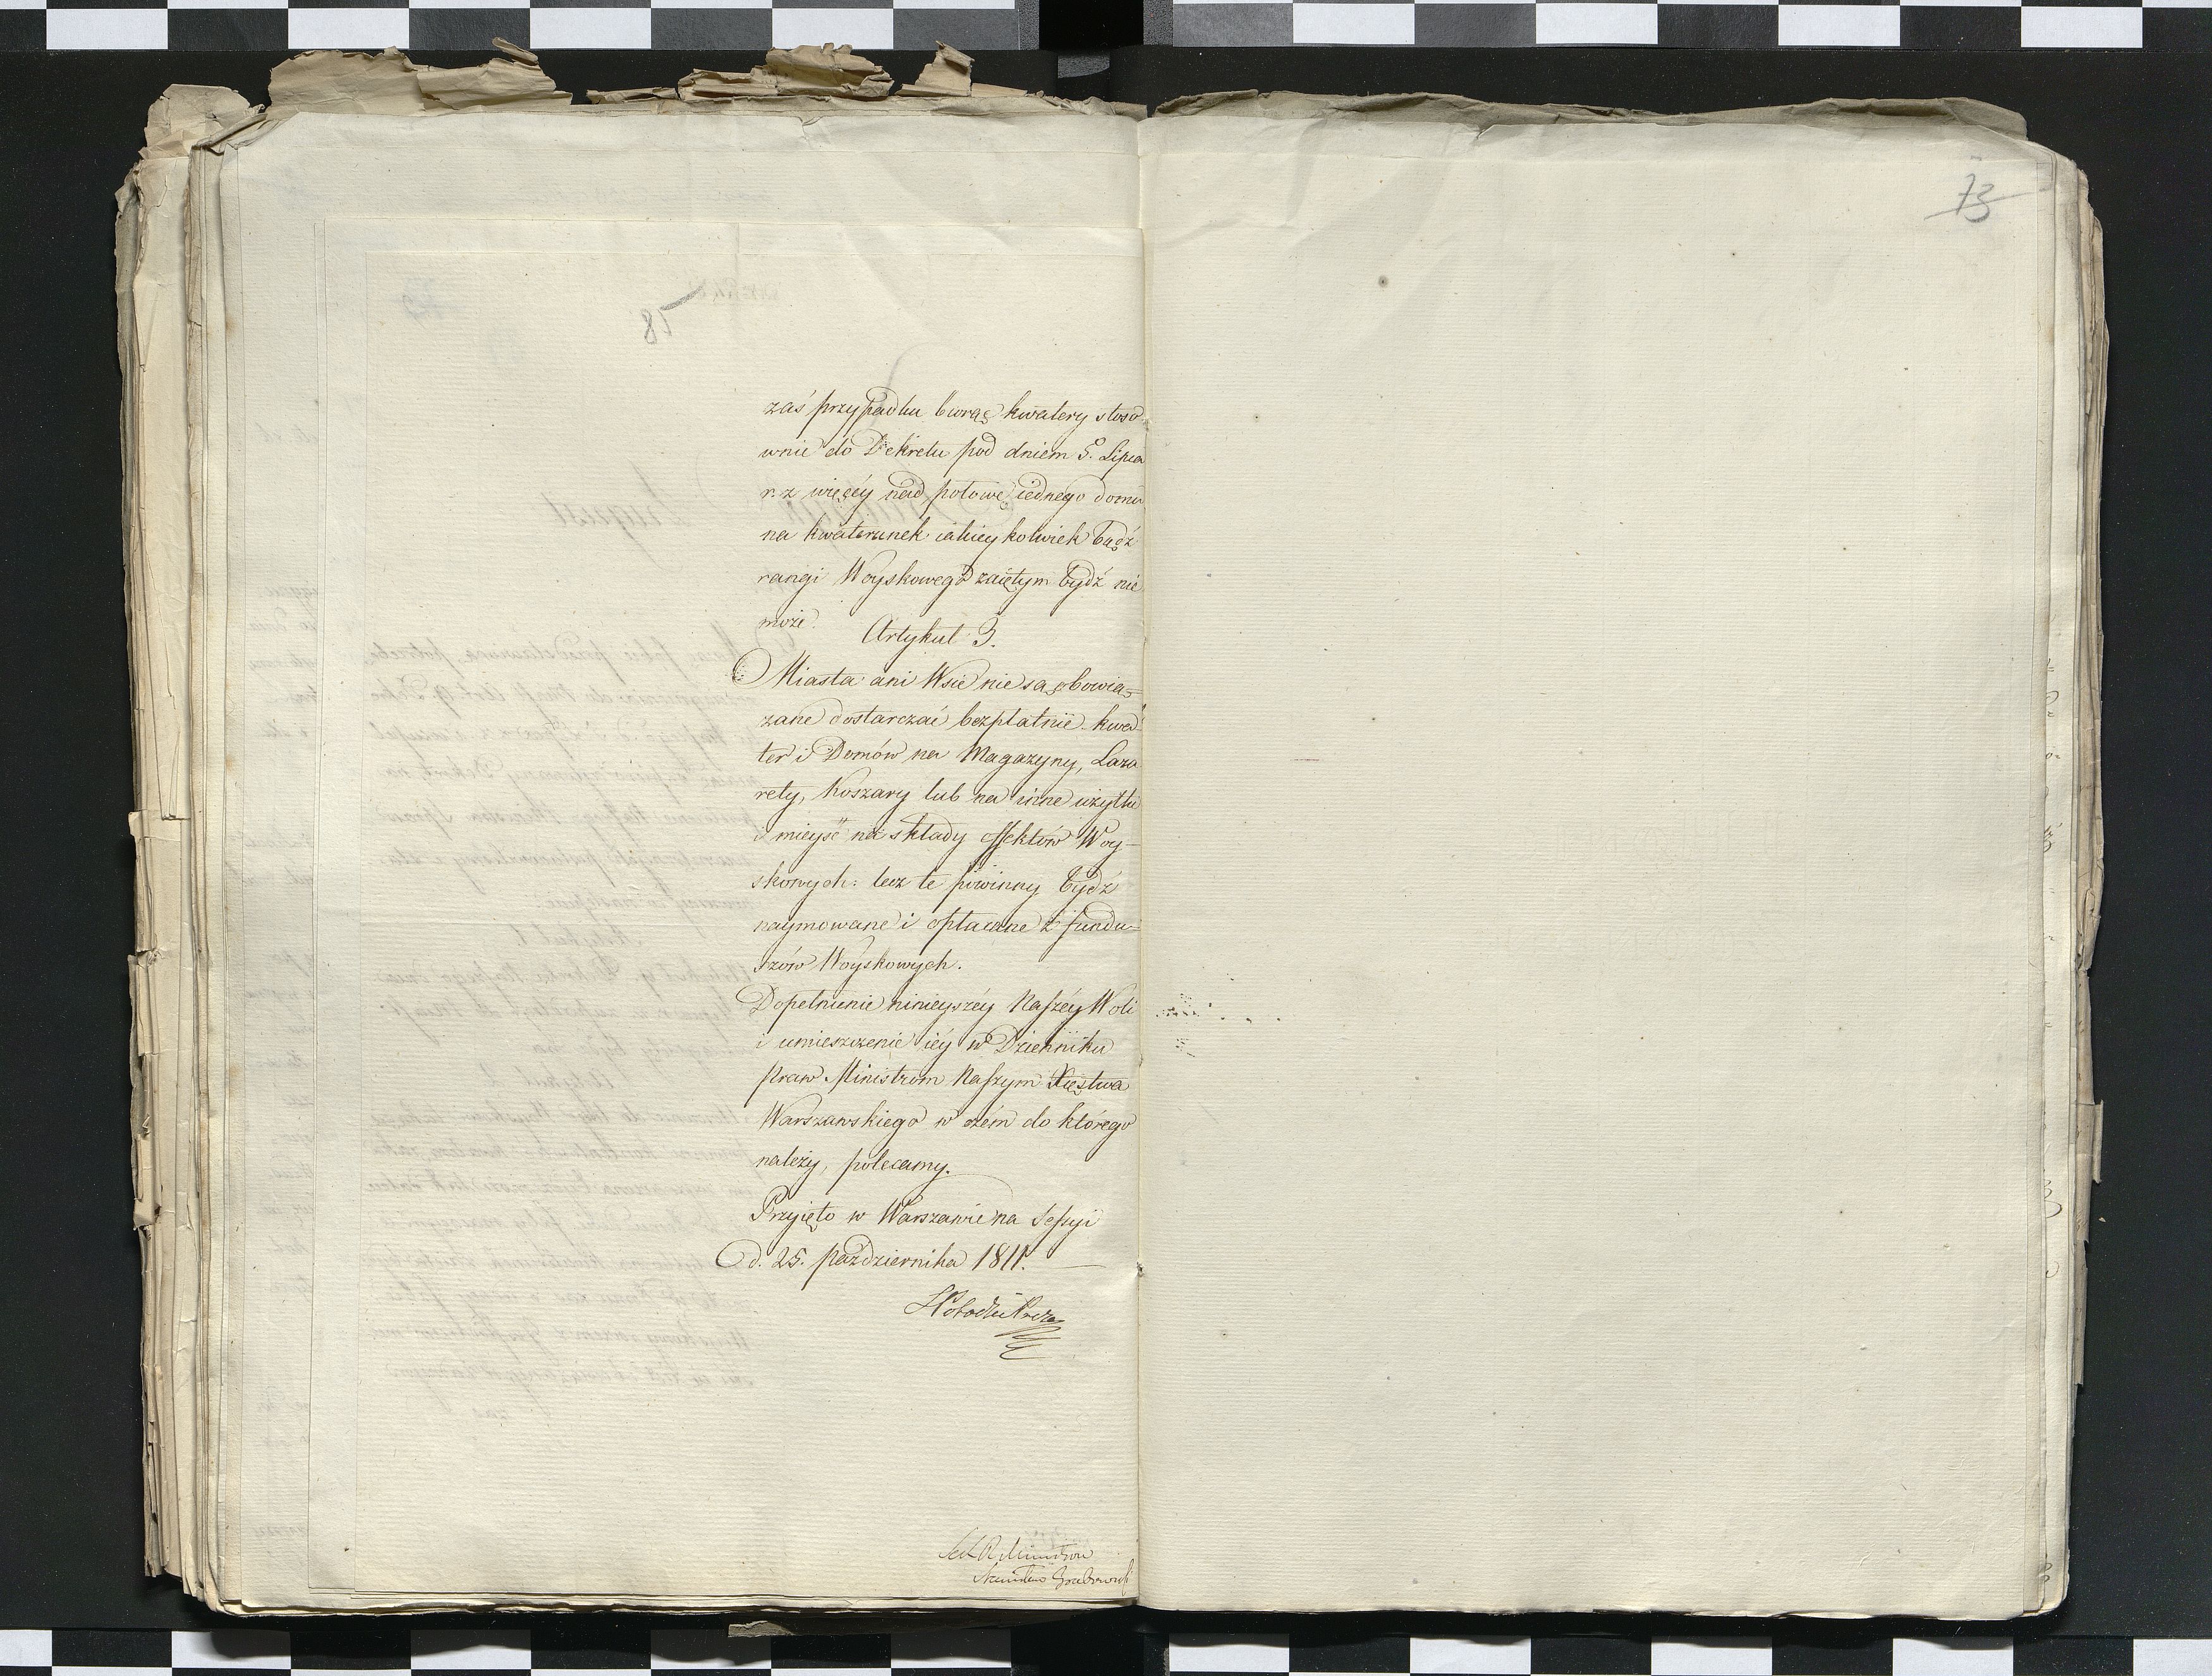 zaś przypadku biorąc kwatery stoso-
wnie do Dekretu pod dniem 5. Lipca
r. z więcéy nad połowę iednego domu
na kwaterunek iakieykolwiek bądź
rangi Woyskowego zaiętym bydź nie
może.
Artykuł 3.
Miasta ani Wsie nie są obowią-
zane dostarczać bezpłatnie kwa-
ter i Domów na Magazyny, Laza
rety, Koszary lub na inne użytki
i mieysc na składy effektów Woy-
skowych: lecz te powinny bydź
naymowane i opłacane z fundu-
szów Woyskowych.
Dopełnienie ninieyszéy Naszéy Woli
i umieszczenie iéy w Dzienniku
praw Ministrom Naszym Xięstwa
Warszawskiego w czém do którego
należy, polecamy.
Przyięto w Warszawie na Sessyi
d. 25. października 1811.
Sekr. R. Ministrów
Stanisław Grabowski
73
85